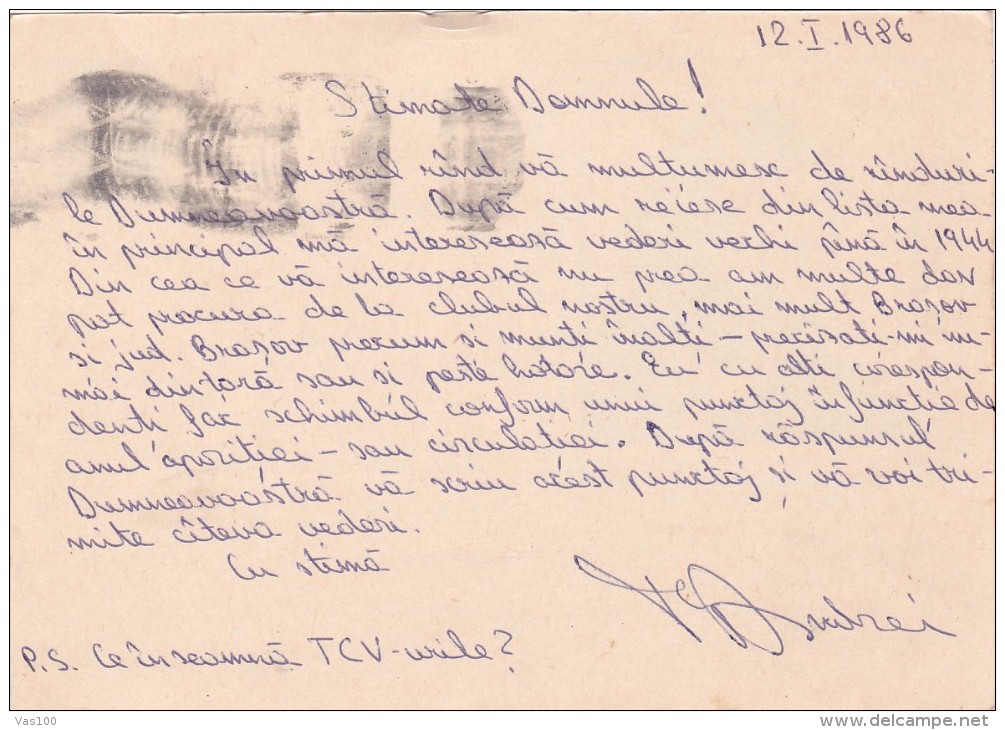 12.I.1986
Stimate Domnule!
În primul rînd vă multumesc de rînduri-
le Dumneavoastră. După cum reiese din lista mea
în principal mă interesează vederi vechi pînă în 1944
Din cea ce vă interesează nu prea am multe dar
pot procura de la clubul nostru, mai mult Brașov
si jud. Brașov precum si munti înalti – precisati-mi nu-
mai din țară sau si peste hotare. Eu cu alti corespon-
denti fac schimbul conform unui punctaj în functie de
anul apozitiei – sau circulatiei. După răspunsul
Dumneavoastră vă scriu acest punctaj si vă voi tri-
mite cîteva vederi.
Cu stimă
Andrei
P.S. Ce înseamnă TCV-urile?
Vas100
www.delcampe.net